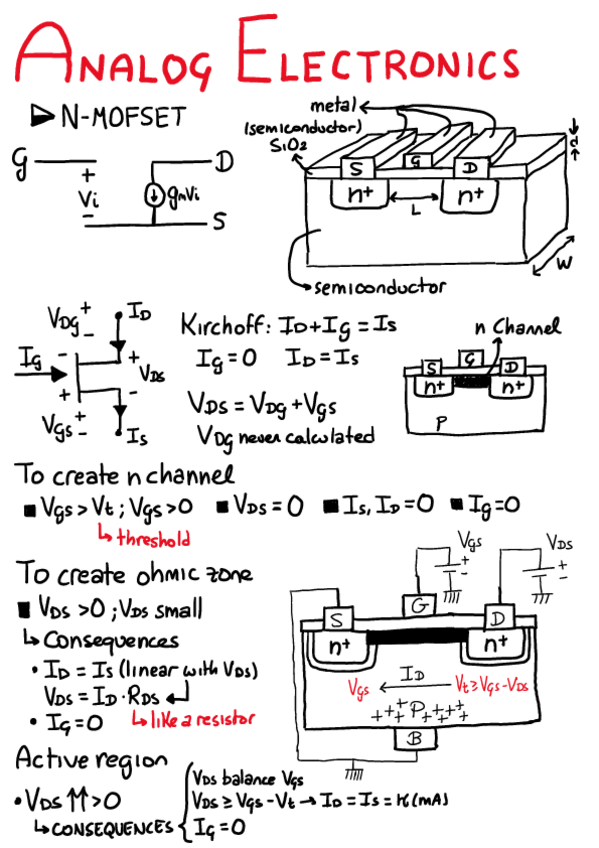 ANALOG ELECTRONICS
N-MOFSET
G
+
Vi
-
gmVi
D
S
metal
(semiconductor)
SiO2
S
G
D
n+
n+
L
d
W
semiconductor
VDG
+
-
ID
Ig
-
+
+
VDS
-
VGS
+
-
IS
Kirchoff: ID+Ig=IS
Ig=0 ID=IS
VDS=VDG+VGS
VDG never calculated
n Channel
S
G
D
n+
n+
P
To create n channel
VGS>Vt; VGS>0 VDS=0 IS, ID=0 Ig=0
threshold
To create ohmic zone
VDS>0; VDS small
Consequences
• ID=IS (linear with VDS)
VDS=ID·RDS
• IG=0 like a resistor
VGS
+
-
VDS
+
-
S
G
D
n+
n+
ID
VGS
Vt≥VGS-VDS
+++ P + + + +
+++ + + +
B
Active region
• VDS↑↑>0
CONSEQUENCES
VDS balance VGS
VDS≥VGS-Vt→ID=IS=K(mA)
IG=0